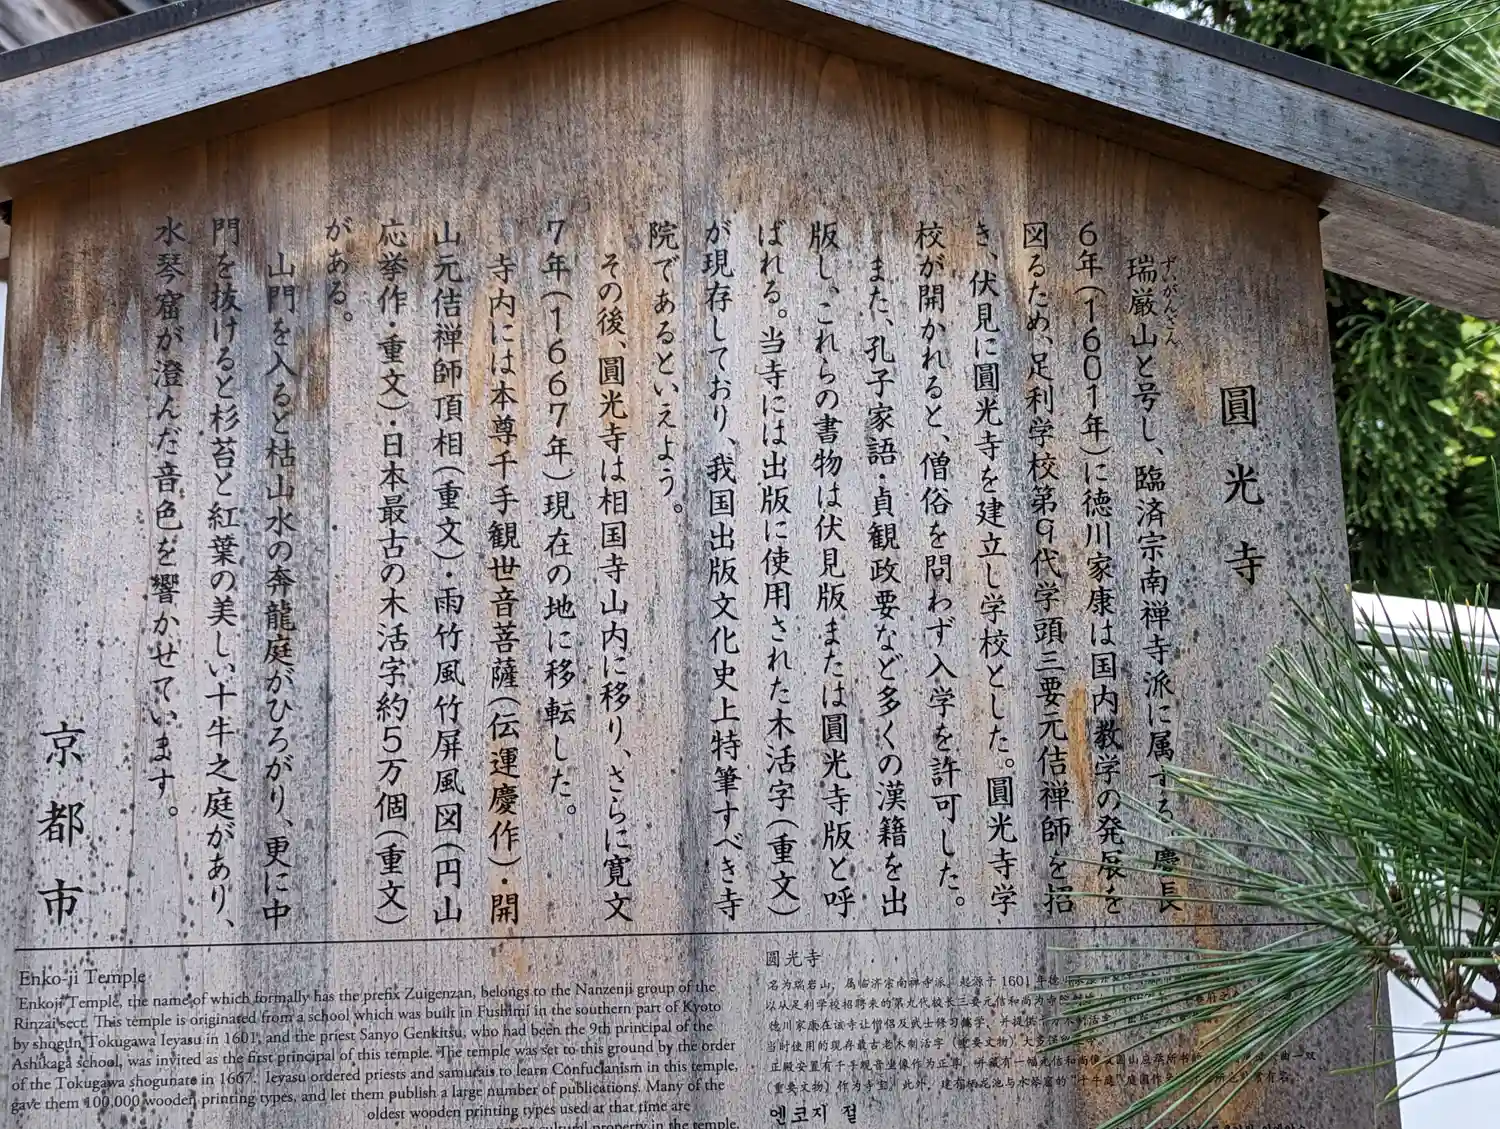 圓光寺
ずいがんさん
瑞巌山と号し、臨済宗南禅寺派に属する。慶長
6年(1601年)に徳川家康は国内教学の発展を
図るため、足利学校第9代学頭三要元佶禅師を招
き、伏見に圓光寺を建立し学校とした。圓光寺学
校が開かれると、僧俗を問わず入学を許可した。
また、孔子家語・貞観政要など多くの漢籍を出
版し、これらの書物は伏見版または圓光寺版と呼
ばれる。当寺には出版に使用された木活字(重文)
が現存しており、我国出版文化史上特筆すべき寺
院であるといえよう。
その後、圓光寺は相国寺山内に移り、さらに寛文
7年(1667年)現在の地に移転した。
寺内には本尊千手観世音菩薩(伝運慶作)・開
山元佶禅師頂相(重文)・雨竹風竹屏風図(円山
応挙作・重文)・日本最古の木活字約5万個(重文)
がある。
山門を入ると枯山水の奔龍庭がひろがり、更に中
門を抜けると杉苔と紅葉の美しい十牛之庭があり、
水琴窟が澄んだ音色を響かせています。
京都市
Enko-ji Temple
Enkoji Temple, the name of which formally has the prefix Zuigenzan, belongs to the Nanzenji group of the
Rinzai sect. This temple is originated from a school which was built in Fushimi in the southern part of Kyoto
by shogun Tokugawa Ieyasu in 1601, and the priest Sanyo Genkitsu, who had been the 9th principal of the
Ashikaga school, was invited as the first principal of this temple. The temple was set to this ground by the order
of the Tokugawa shogunate in 1667. Ieyasu ordered priests and samurais to learn Confucianism in this temple,
gave them 100,000 wooden printing types, and let them publish a large number of publications. Many of the
oldest wooden printing types used at that time are
cultural property in the temple.
圆光寺
名为瑞岩山，属临济宗南禅寺派。起源于 1601 年德
以从足利学校招聘来的第九代校长三要元佶和尚为寺院
德川家康在该寺让僧侣及武士修习儒学，并提供十万木制活字
当时使用的现存最古老木制活字（重要文物）大多保
正殿安置有千手观音坐像作为正尊，并藏有一幅元佶和尚像及圆山应举所书
（重要文物）作为寺宝。此外，建有栖龙池与水琴窟的“十牛庭”庭园作
엔코지 절